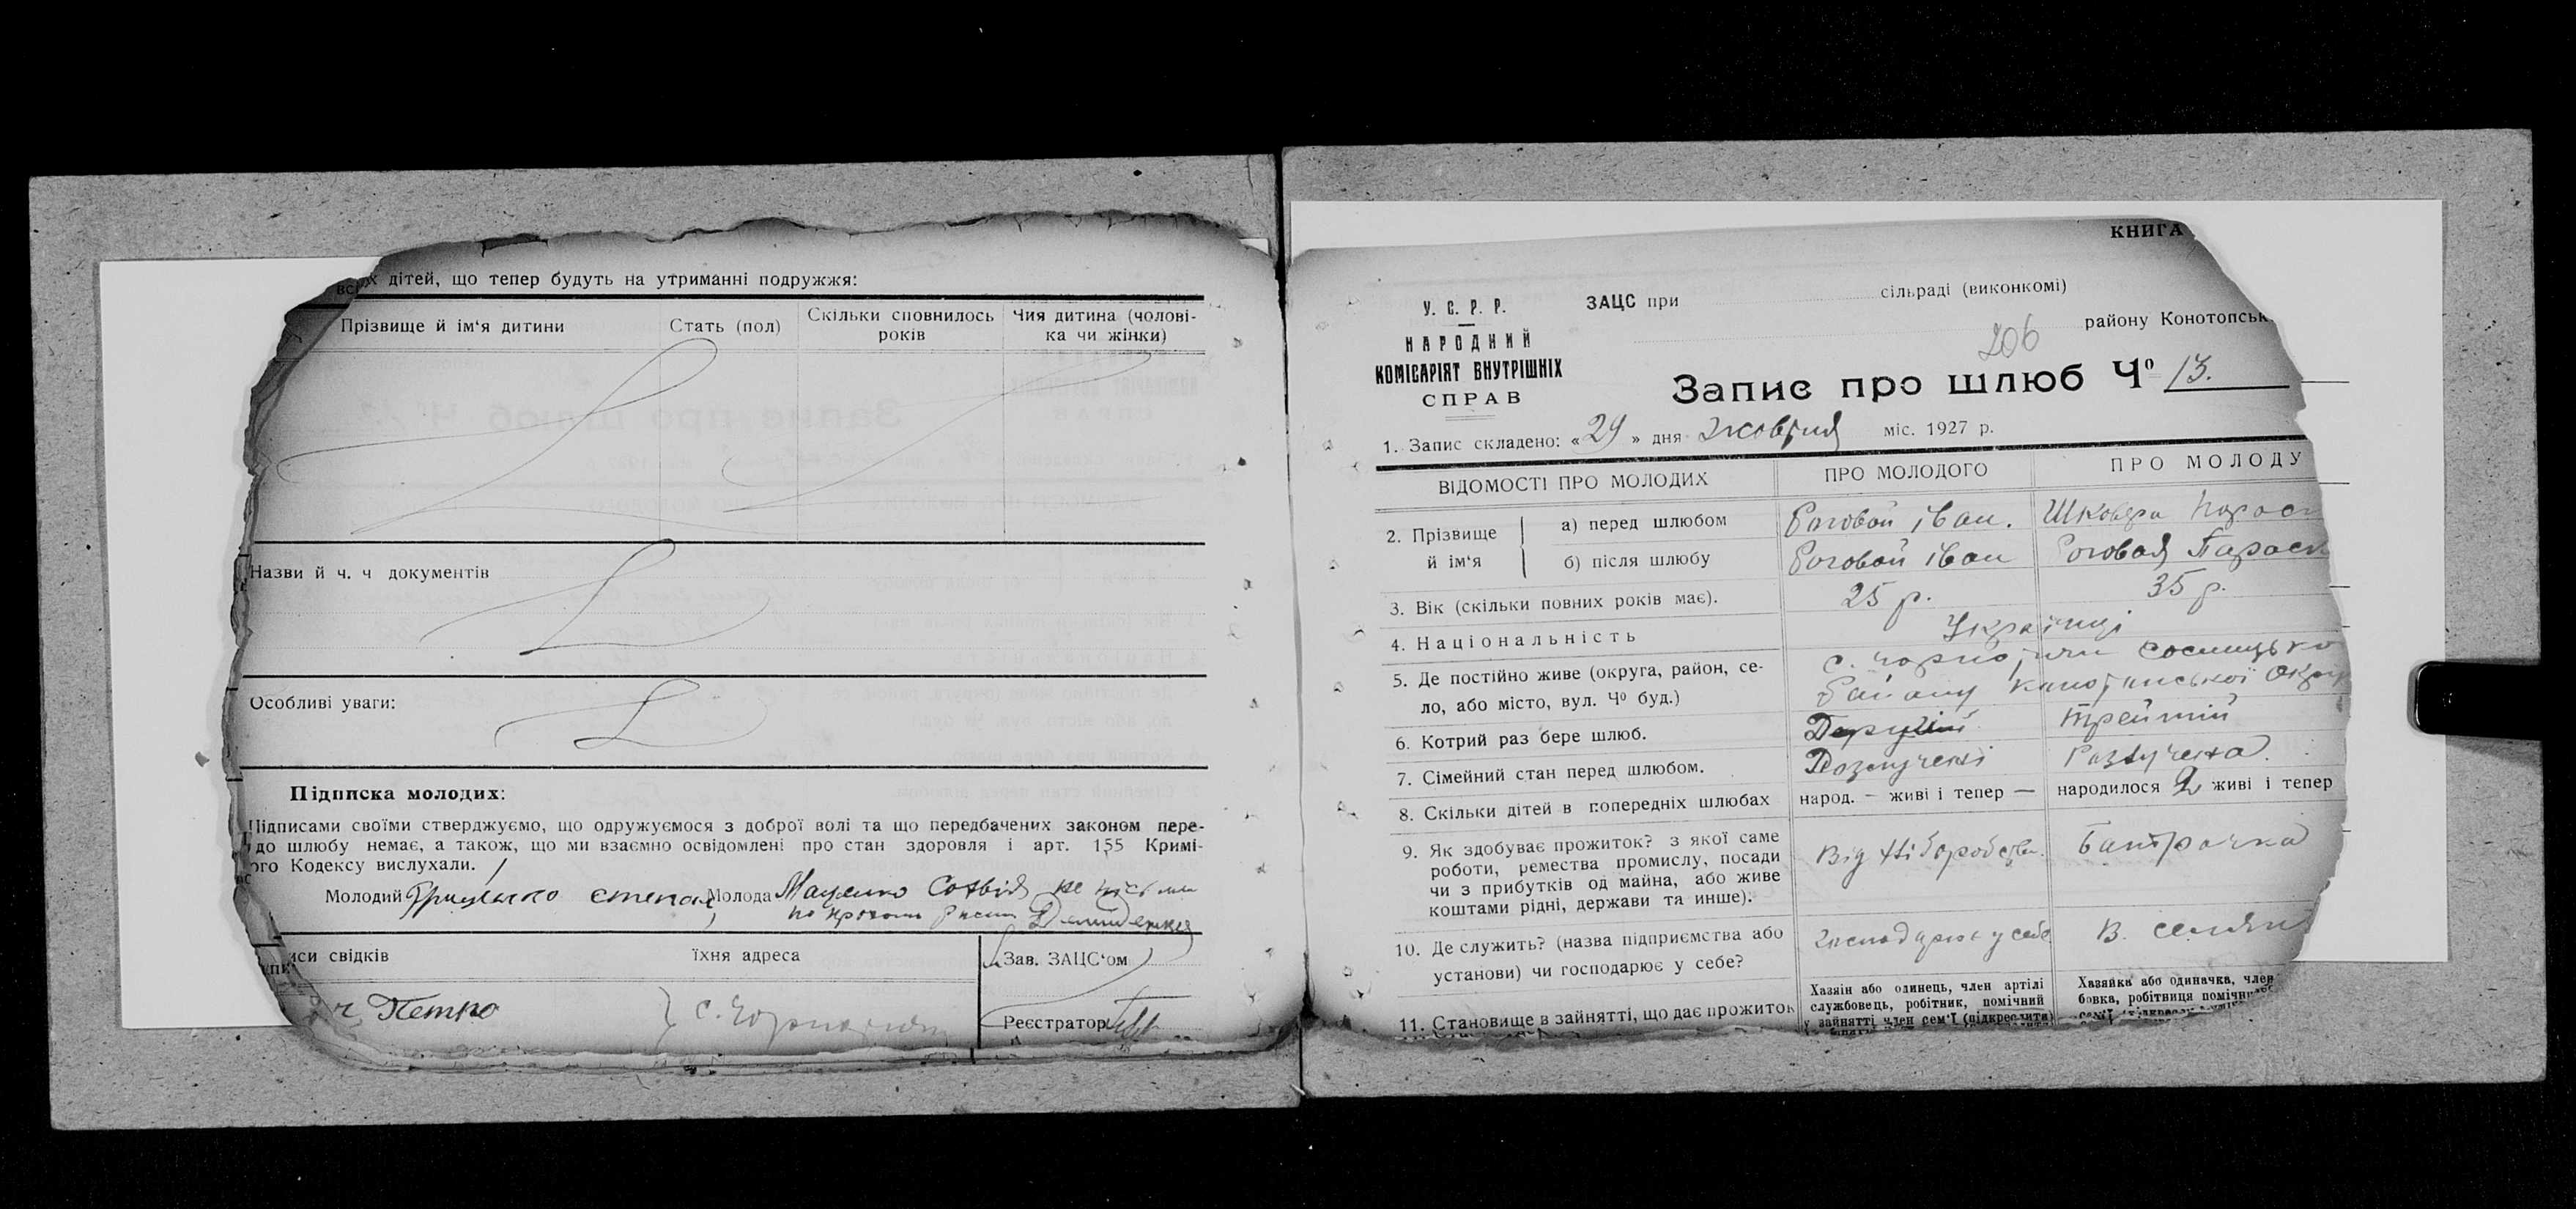 всіх дітей, що тепер будуть на утриманні подружжя:
Прізвище й ім‘я дитини
Стать (пол)
Скільки сповнилось років
Чия дитина (чолові-
ка чи жінки)
Назви й ч. ч документів
Особливі уваги:
Підписка молодих:
Підписами своїми стверджуємо, що одружуємося з доброї волі та що передбачених законом пере-
до шлюбу немає, а також, що ми взаємно освідомлені про стан здоровля і арт. 155 Кримі-
ого Кодексу вислухали.
Молодий Грицченко степан Молода Маценко Софвія не
иси свідків
їхня адреса
Зав. ЗАЦС‘ом
Петро
с.
Реєстратор
КНИГА
У. С. Р. Р.
НАРОДНИЙ
КОМІСАРІЯТ ВНУТРІШНІХ
СПРАВ
ЗАЦС при сільраді (виконкомі)
району Конотопськ
206
Запис про шлюб Чº 13.
1. Запис складено: «29» дня жовтня міс. 1927 р.
ВІДОМОСТІ ПРО МОЛОДИХ
ПРО МОЛОДОГО
ПРО МОЛОДУ
2. Прізвище й ім‘я
а) перед шлюбом
Роговой іван.
Шковра Параск
б) після шлюбу
Роговой іван
Роговая Параск
3. Вік (скільки повних років має).
25 р.
35 р.
4. Національність
Українці
5. Де постійно живе (округа, район, се-
ло, або місто, вул. Чº буд.)
с. Чорнотичи сосницько
Району Конотопської Окру
6. Котрий раз бере шлюб.
трейтий
7. Сімейний стан перед шлюбом.
Розлучені
Разлучена.
8. Скільки дітей в попередніх шлюбах
народ. – живі і тепер —
народилося 2 живі і тепер
9. Як здобуває прожиток? з якої саме
роботи, ремества промислу, посади
чи з прибутків од майна, або живе
коштами рідні, держави та инше).
Від Хліборобства.
Батрачка
10. Де служить? (назва підприємства або
установи) чи господарює у себе?
Господарює у себе
В. селян
11. Становище в зайнятті, що дає прожиток
Хазяїн або одинець, член артілі
службовець, робітник, помічний
у зайнятті член сем‘ї (підкреслити)
Хазяйка або одиначка, член
бовка, робітниця помічни